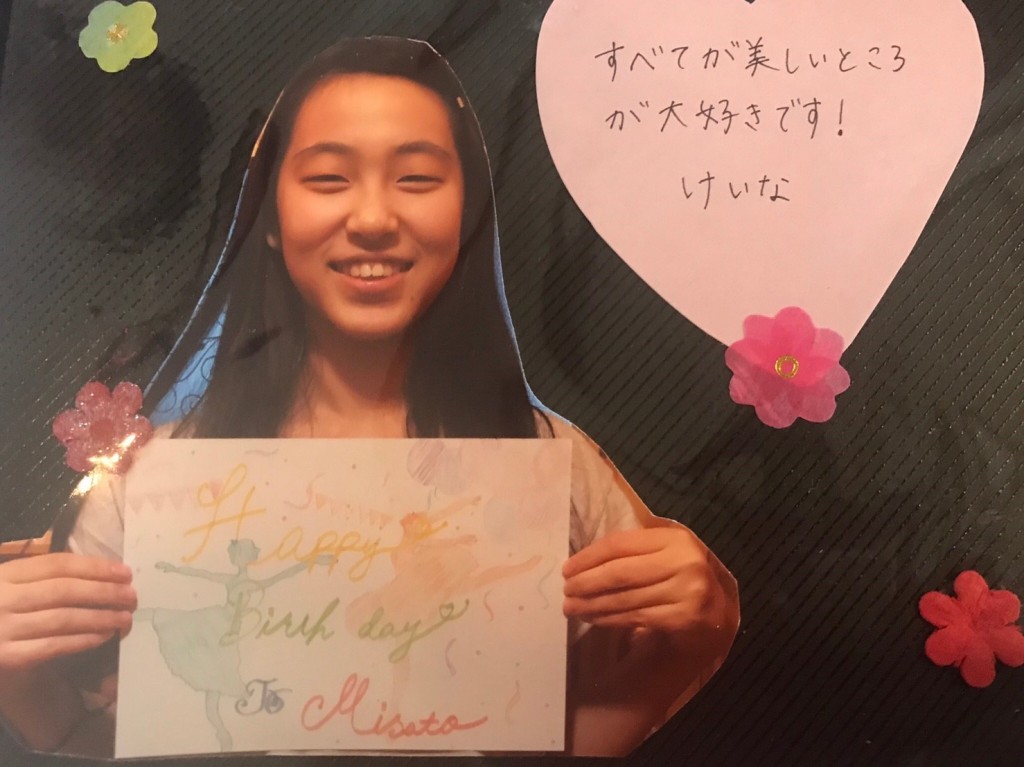 すべてが美しいところ
が大好きです!
けいな
Happy
Birth day
To Misato